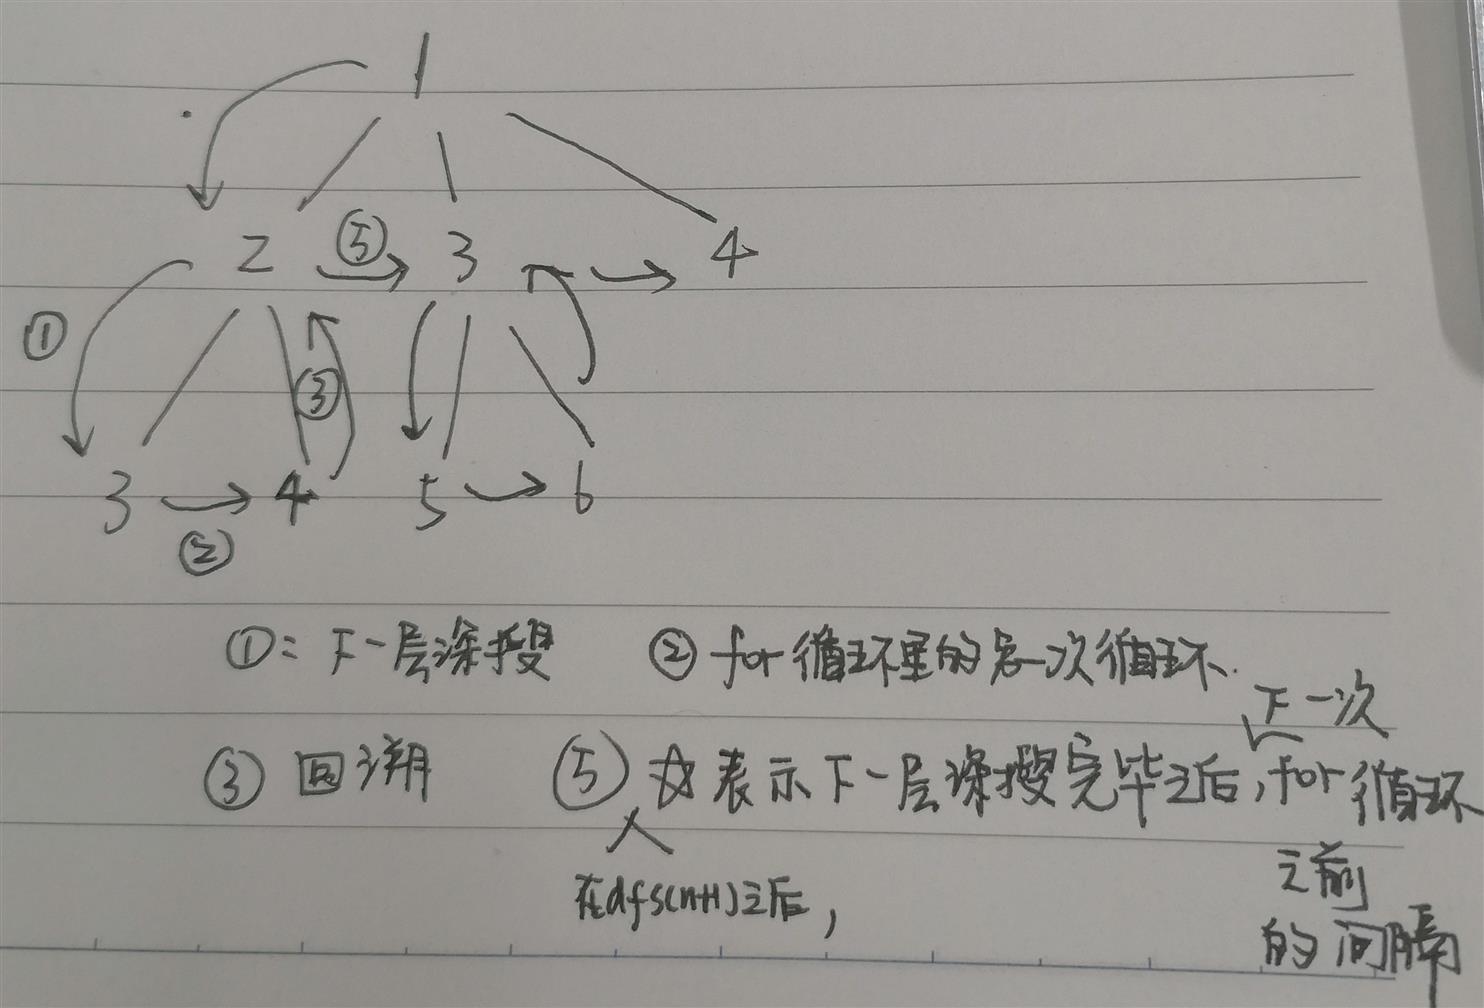 1
2 ⑤ 3 4
①
③
3 4 5 6
②
①: 下一层深搜 ② for循环里的每一次循环.
下一次
③ 回溯 ⑤ 表示下一层深搜完毕之后, for循环
在dfs(n+1)之后, 之前
的间隔